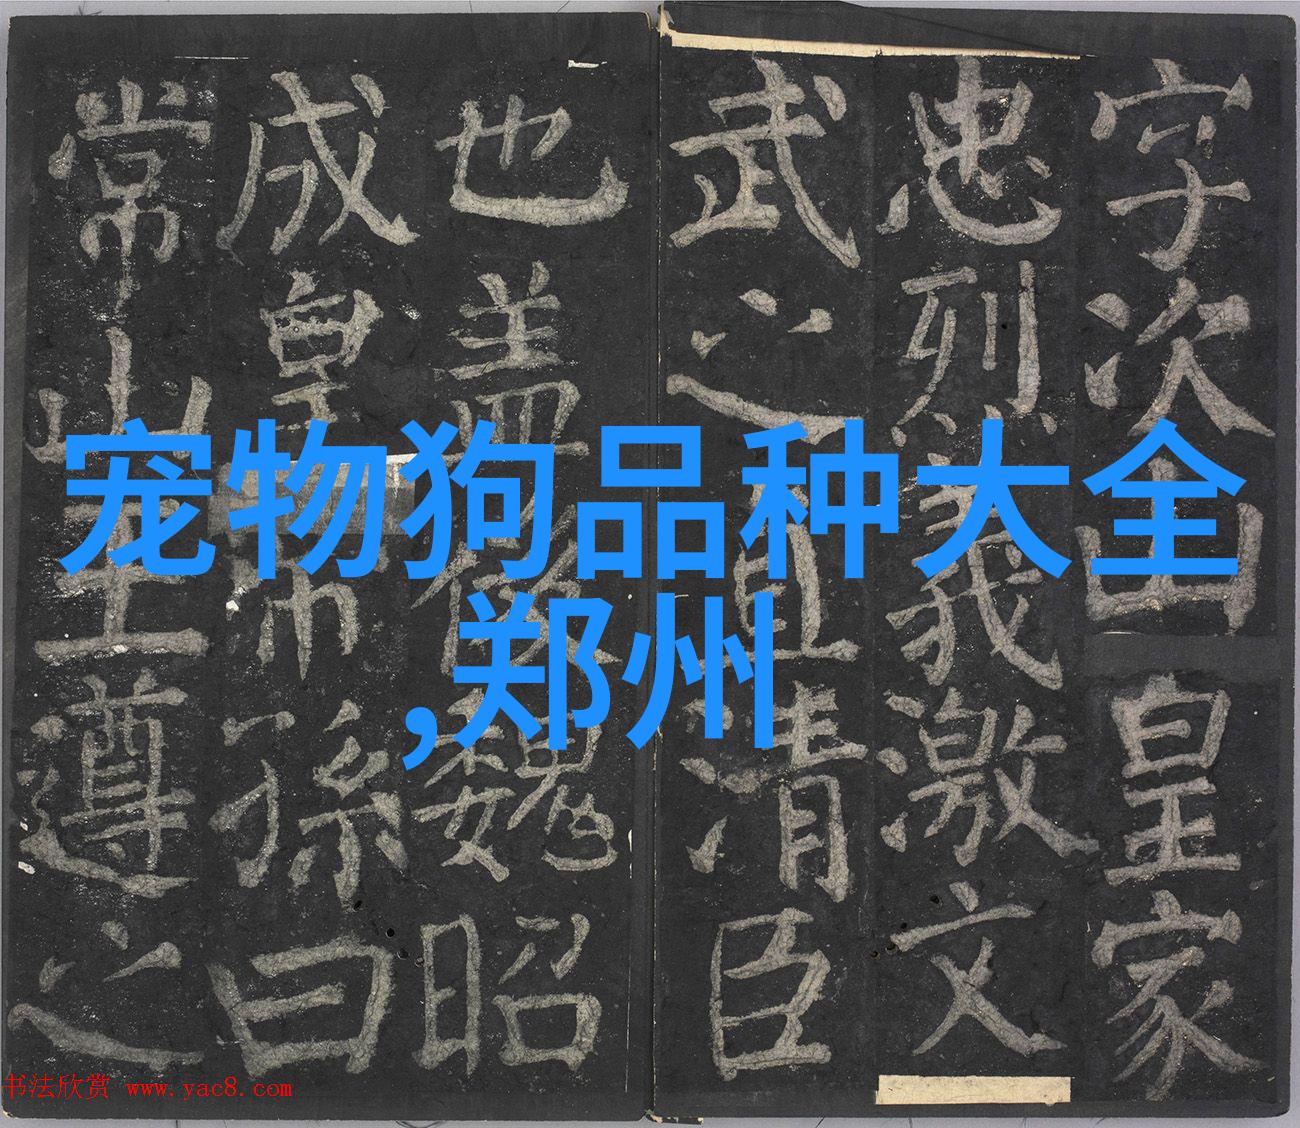 字次山皇家
忠烈義激文
武之直清臣
也盖後魏昭
成皇帝孫曰
常山王遵之
宠物狗品种大全
,郑州
书法欣赏 www.yac8.com